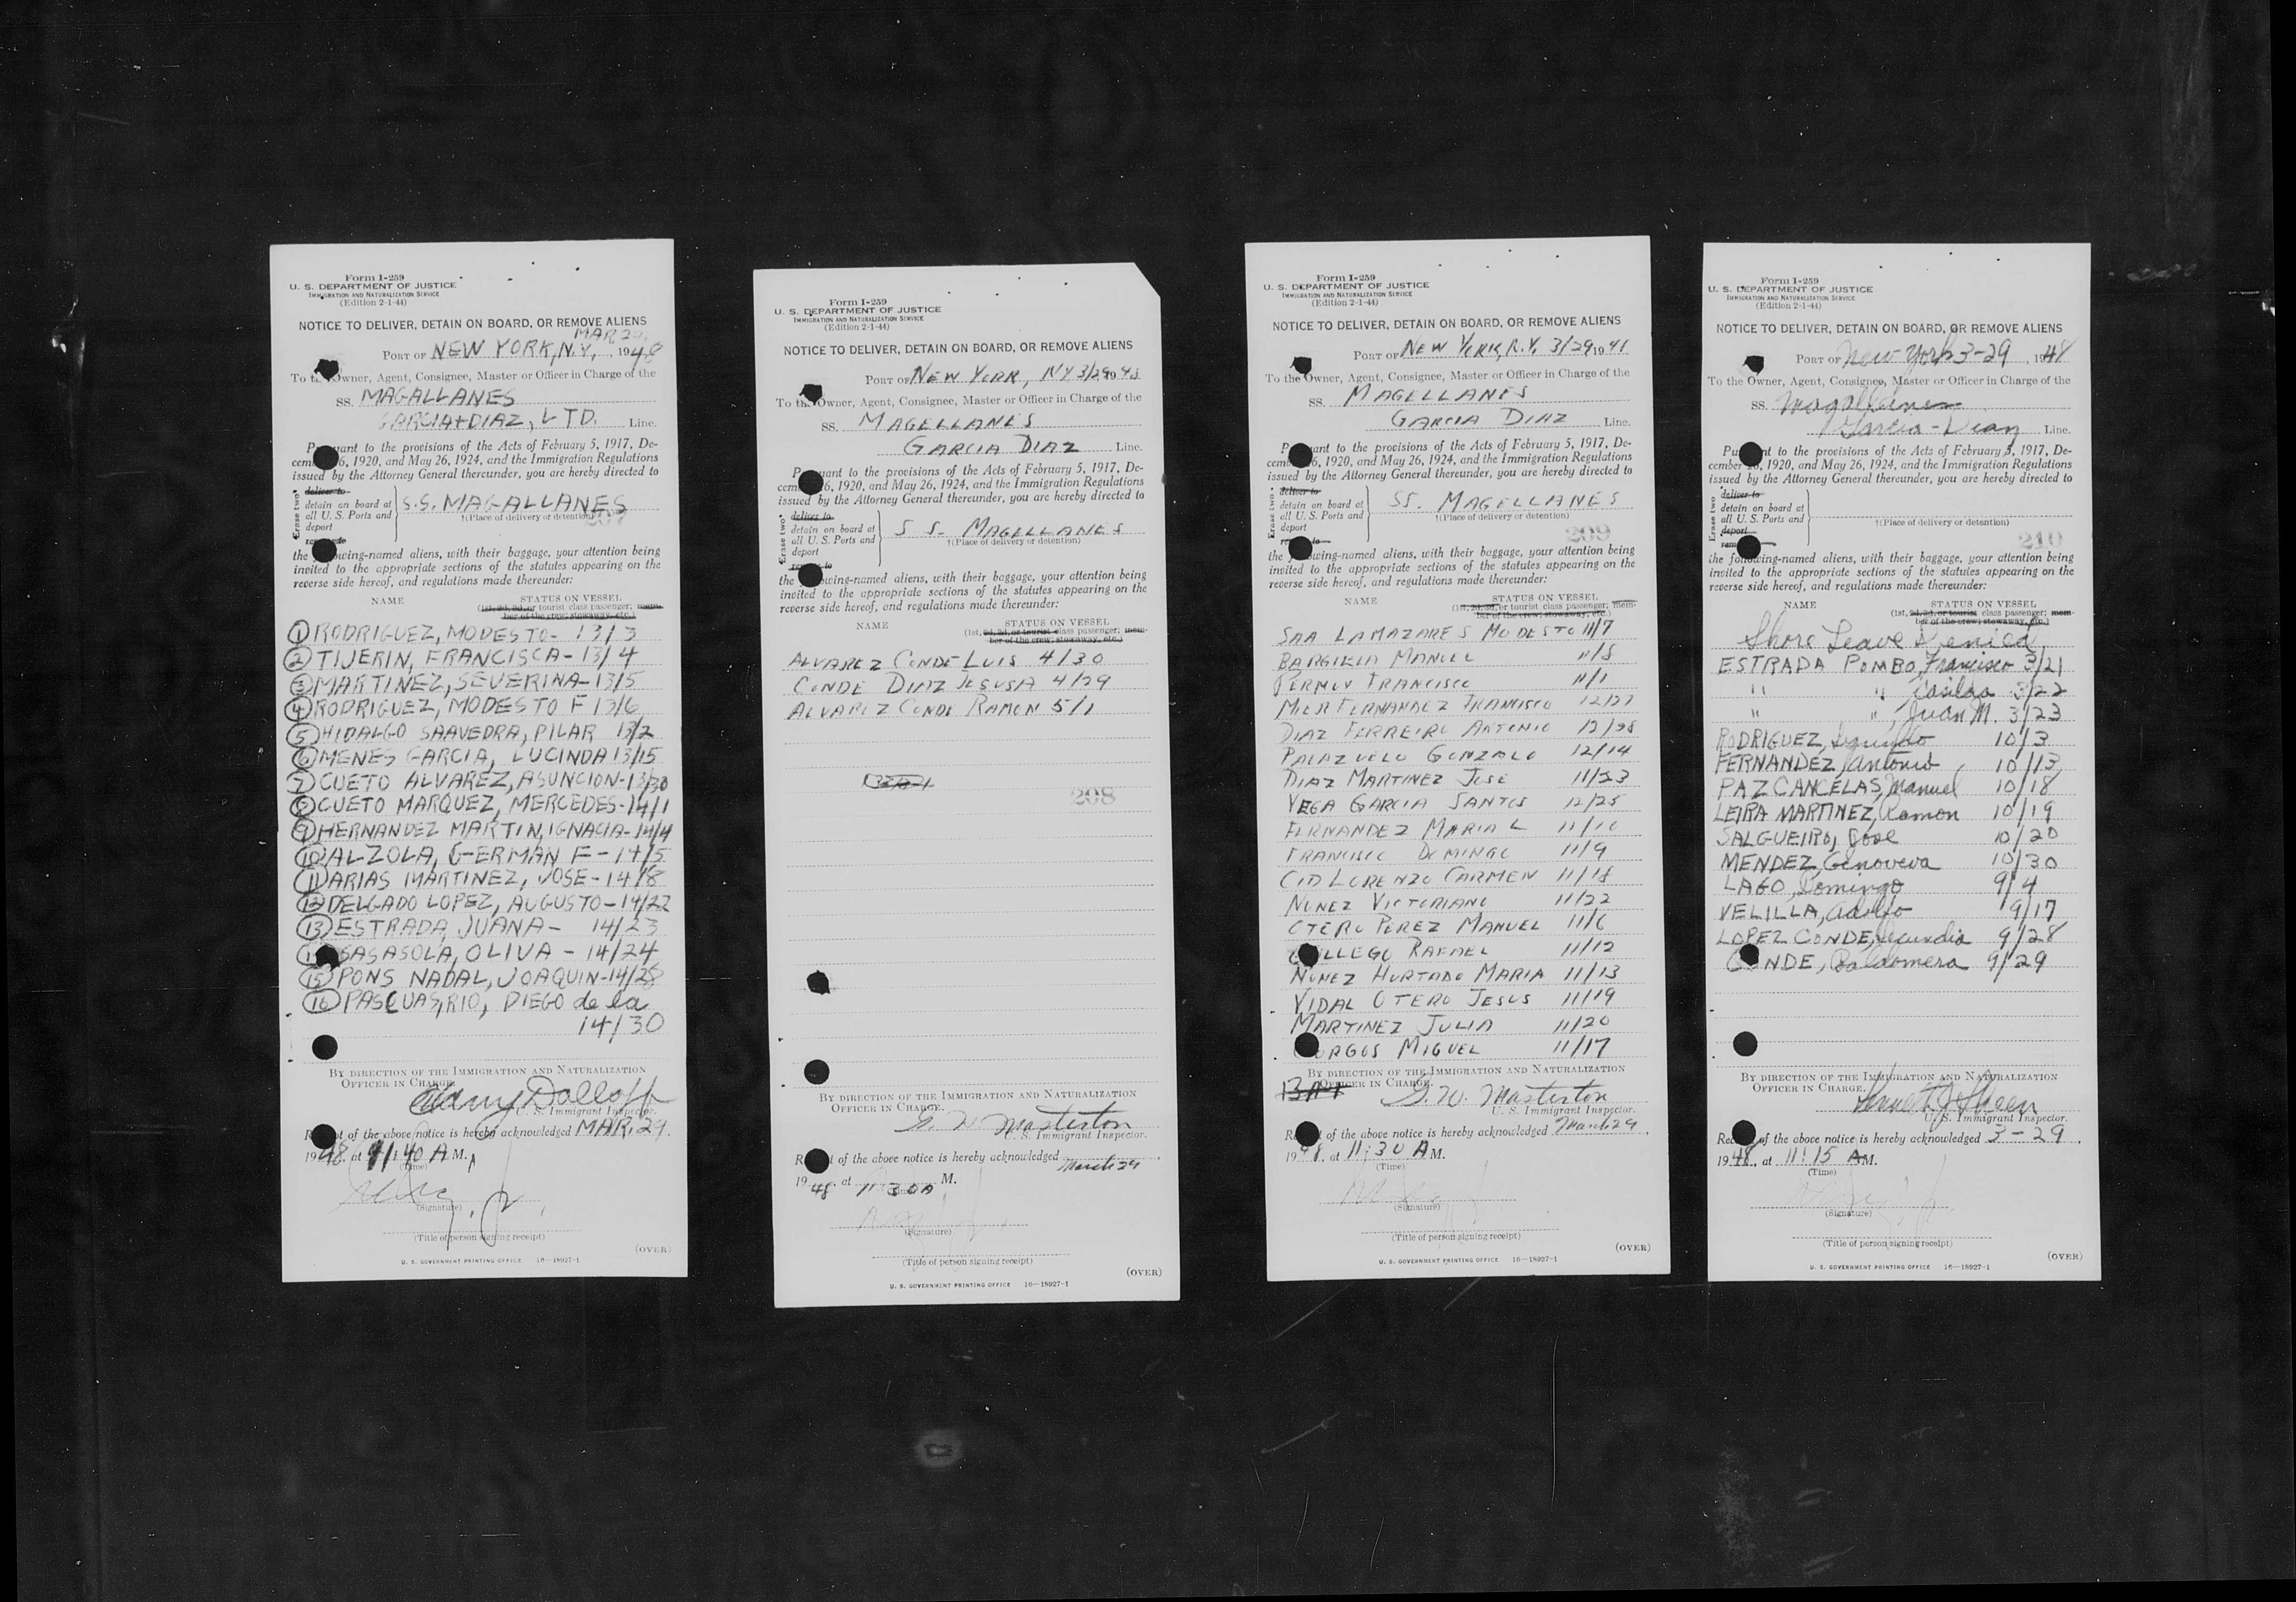 Form I-259
U. S. DEPARTMENT OF JUSTICE
IMMIGRATION AND NATURALIZATION SERVICE
(Edition 2-1-44)
NOTICE TO DELIVER, DETAIN ON BOARD, OR REMOVE ALIENS
MAR 29,
PORT OF NEW YORK, N.Y., 1948
To the Owner, Agent, Consignee, Master or Officer in Charge of the
SS. MAGALLANES
GARCIA + DIAZ, LTD. Line.
Pursuant to the provisions of the Acts of February 5, 1917, De-
cember 26, 1920, and May 26, 1924, and the Immigration Regulations
issued by the Attorney General thereunder, you are hereby directed to
Erase two*
deliver to
detain on board at
all U. S. Ports and
deport
remove to
S.S. MAGALLANES
†(Place of delivery or detention)
207
the following-named aliens, with their baggage, your attention being
invited to the appropriate sections of the statutes appearing on the
reverse side hereof, and regulations made thereunder:
NAME STATUS ON VESSEL
(1st, 2d, 3d, or tourist class passenger; mem-
ber of the crew; stowaway, etc.)
1 RODRIGUEZ, MODESTO- 13/3
2 TIJERIN, FRANCISCA- 13/4
3 MARTINEZ, SEVERINA- 13/5
4 RODRIGUEZ, MODESTO F 13/6
5 HIDALGO SAAVEDRA, PILAR 13/2
6 MENES GARCIA, LUCINDA 13/15
7 CUETO ALVAREZ, ASUNCION- 13/30
8 CUETO MARQUEZ, MERCEDES- 14/1
9 HERNANDEZ MARTIN, IGNACIA- 14/4
10 ALZOLA, GERMAN F- 14/5
11 ARIAS MARTINEZ, JOSE- 14/8
12 DELGADO LOPEZ, AUGUSTO- 14/22
13 ESTRADA, JUANA- 14/23
SASASOLA, OLIVA - 14/24
15 PONS NADAL, JOAQUIN- 14/28
16 PASCUAS, RIO, DIEGO de la
14/30
BY DIRECTION OF THE IMMIGRATION AND NATURALIZATION
OFFICER IN CHARGE.
Dolloff
U. S. Immigrant Inspector.
Receipt of the above notice is hereby acknowledged MAR. 29.
1948, at 11:40 A M.
(Time)
(Signature)
(Title of person signing receipt)
(OVER)
U. S. GOVERNMENT PRINTING OFFICE 16—18927-1
Form I-259
U. S. DEPARTMENT OF JUSTICE
IMMIGRATION AND NATURALIZATION SERVICE
(Edition 2-1-44)
NOTICE TO DELIVER, DETAIN ON BOARD, OR REMOVE ALIENS
PORT OF NEW YORK, NY 3/29 1948
To the Owner, Agent, Consignee, Master or Officer in Charge of the
SS. MAGELLANES
GARCIA DIAZ Line.
Pursuant to the provisions of the Acts of February 5, 1917, De-
cember 26, 1920, and May 26, 1924, and the Immigration Regulations
issued by the Attorney General thereunder, you are hereby directed to
Erase two*
deliver to
detain on board at
all U. S. Ports and
deport
remove to
S S. MAGELLANES
†(Place of delivery or detention)
the following-named aliens, with their baggage, your attention being
invited to the appropriate sections of the statutes appearing on the
reverse side hereof, and regulations made thereunder:
NAME STATUS ON VESSEL
(1st, 2d, 3d, or tourist class passenger; mem-
ber of the crew; stowaway, etc.)
ALVAREZ CONDE LUIS 4/30
CONDE DIAZ JESUSA 4/29
ALVAREZ CONDE RAMON 5/1
208
BY DIRECTION OF THE IMMIGRATION AND NATURALIZATION
OFFICER IN CHARGE.
G. W. Masterton
U. S. Immigrant Inspector.
Receipt of the above notice is hereby acknowledged March 29
1948, at 11 30 A M.
(Signature)
(Title of person signing receipt)
(OVER)
U. S. GOVERNMENT PRINTING OFFICE 16—18927-1
Form I-259
U. S. DEPARTMENT OF JUSTICE
IMMIGRATION AND NATURALIZATION SERVICE
(Edition 2-1-44)
NOTICE TO DELIVER, DETAIN ON BOARD, OR REMOVE ALIENS
PORT OF NEW YORK, N.Y. 3/29 1948
To the Owner, Agent, Consignee, Master or Officer in Charge of the
SS. MAGELLANES
GARCIA DIAZ Line.
Pursuant to the provisions of the Acts of February 5, 1917, De-
cember 26, 1920, and May 26, 1924, and the Immigration Regulations
issued by the Attorney General thereunder, you are hereby directed to
Erase two*
deliver to
detain on board at
all U. S. Ports and
deport
remove to
SS. MAGELLANES
†(Place of delivery or detention)
209
the following-named aliens, with their baggage, your attention being
invited to the appropriate sections of the statutes appearing on the
reverse side hereof, and regulations made thereunder:
NAME STATUS ON VESSEL
(1st, 2d, 3d, or tourist class passenger; mem-
ber of the crew; stowaway, etc.)
SAA LAMAZARES MODESTO 11/7
MANUEL 11/8
FRANCISCO 11/1
FERNANDEZ FRANCISCO 12/27
DIAZ FERREIRO ANTONIO 12/28
PALAZUELO GONZALO 12/14
DIAZ MARTINEZ JOSE 11/23
VEGA GARCIA SANTOS 12/25
FERNANDEZ MARIA L 11/10
FRANCISCO DOMINGO 11/9
CID LORENZO CARMEN 11/18
NUNEZ VICTORIANO 11/22
OTERO PEREZ MANUEL 11/6
GALLEGO RAFAEL 11/12
NUNEZ HURTADO MARIA 11/13
VIDAL OTERO JESUS 11/19
MARTINEZ JULIA 11/20
BURGOS MIGUEL 11/17
BY DIRECTION OF THE IMMIGRATION AND NATURALIZATION
OFFICER IN CHARGE.
G. W. Masterton
U. S. Immigrant Inspector.
Receipt of the above notice is hereby acknowledged March 29,
1948, at 11:30 A M.
(Time)
(Signature)
(Title of person signing receipt)
(OVER)
U. S. GOVERNMENT PRINTING OFFICE 16—18927-1
Form I-259
U. S. DEPARTMENT OF JUSTICE
IMMIGRATION AND NATURALIZATION SERVICE
(Edition 2-1-44)
NOTICE TO DELIVER, DETAIN ON BOARD, OR REMOVE ALIENS
PORT OF New York 3-29, 1948
To the Owner, Agent, Consignee, Master or Officer in Charge of the
SS. Magallanes
Garcia - Diaz Line.
Pursuant to the provisions of the Acts of February 5, 1917, De-
cember 26, 1920, and May 26, 1924, and the Immigration Regulations
issued by the Attorney General thereunder, you are hereby directed to
Erase two
deliver to
detain on board at
all U. S. Ports and
deport
remove to
†(Place of delivery or detention)
210
the following-named aliens, with their baggage, your attention being
invited to the appropriate sections of the statutes appearing on the
reverse side hereof, and regulations made thereunder:
NAME STATUS ON VESSEL
(1st, 2d, 3d, or tourist class passenger; mem-
ber of the crew; stowaway, etc.)
Shore Leave Denied
ESTRADA POMBO, Francisco 3/21
" " Casilda 3/22
" ", Juan M. 3/23
RODRIGUEZ, Segundo 10/3
FERNANDEZ, Antonio, 10/13
PAZ CANCELAS, Manuel 10/18
LEIRA MARTINEZ, Ramon 10/19
SALGUEIRO, Jose 10/20
MENDEZ, Genoveva 10/30
LAGO, Domingo 9/4
VELILLA, Adolfo 9/17
LOPEZ CONDE, Secundia 9/28
CONDE, Baldomera 9/29
BY DIRECTION OF THE IMMIGRATION AND NATURALIZATION
OFFICER IN CHARGE.
U. S. Immigrant Inspector.
Receipt of the above notice is hereby acknowledged 3-29,
1948, at 11:15 A M.
(Time)
(Signature)
(Title of person signing receipt)
(OVER)
U. S. GOVERNMENT PRINTING OFFICE 16—18927-1